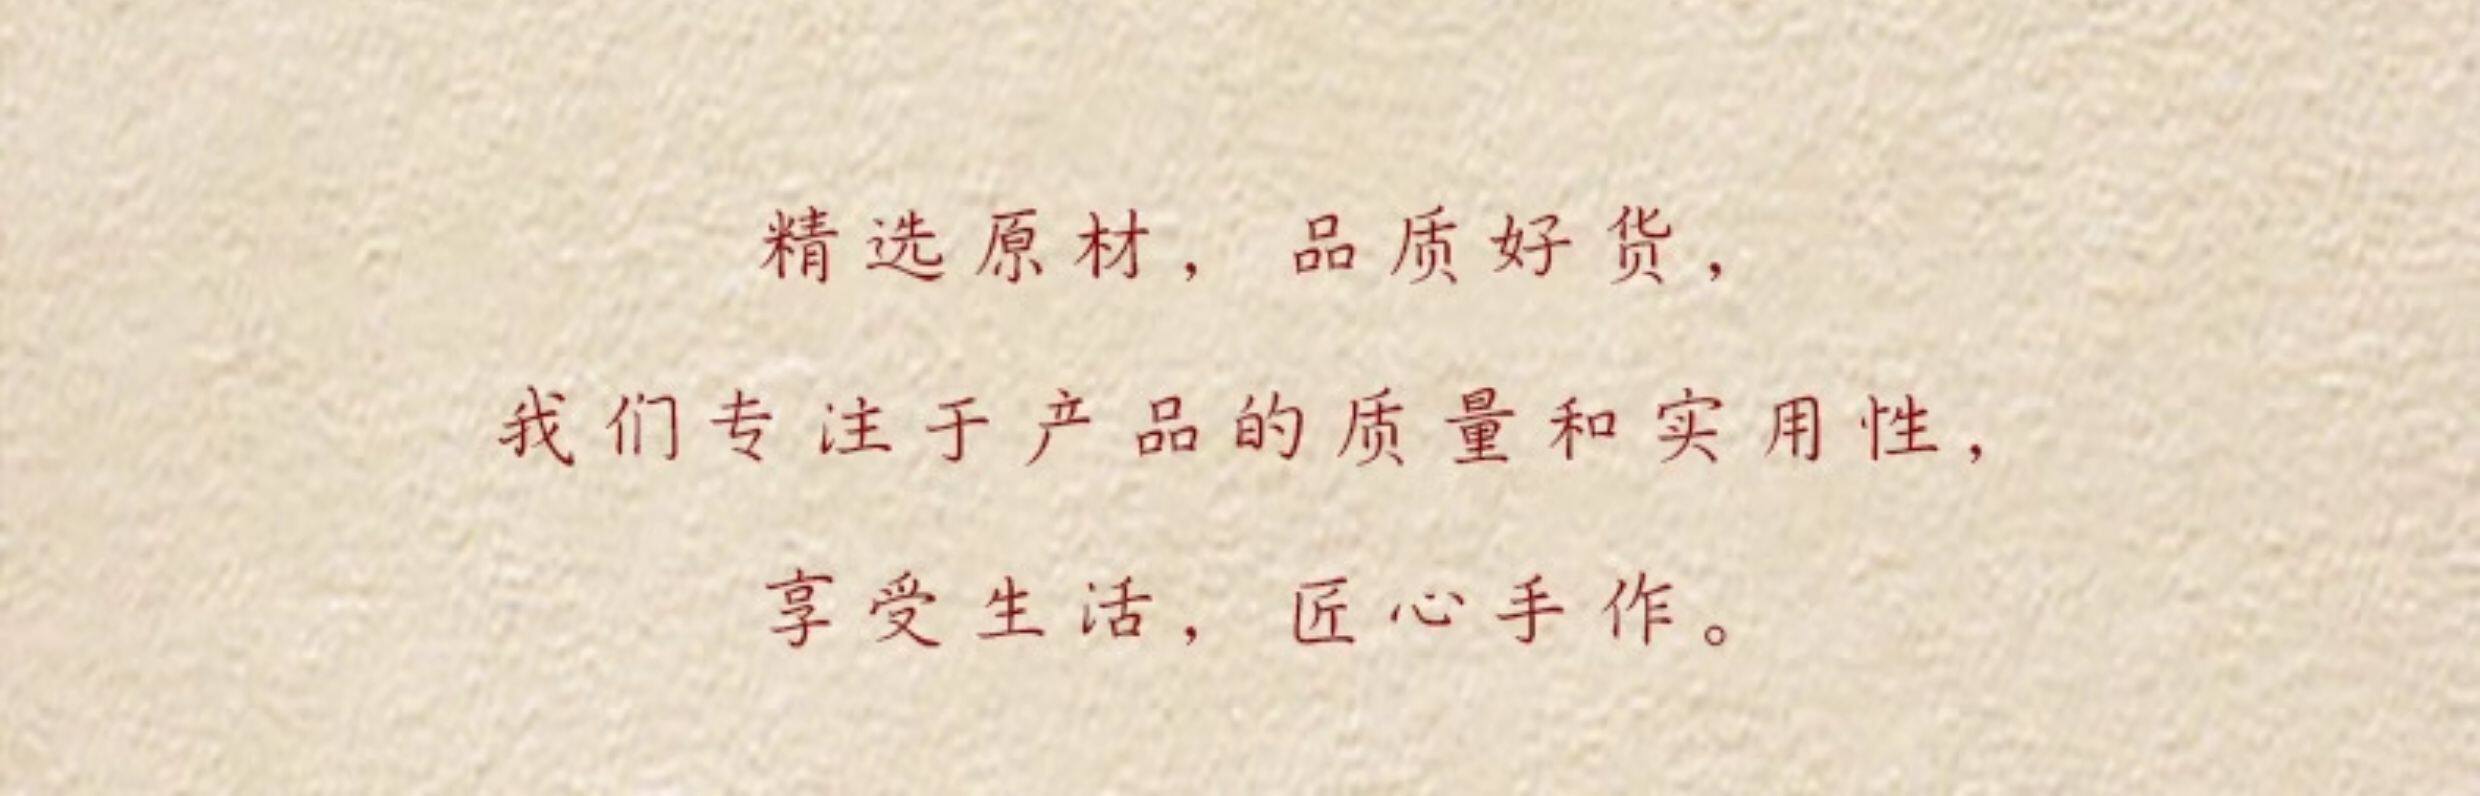 精选原材，品质好货，
我们专注于产品的质量和实用性，
享受生活，匠心手作。